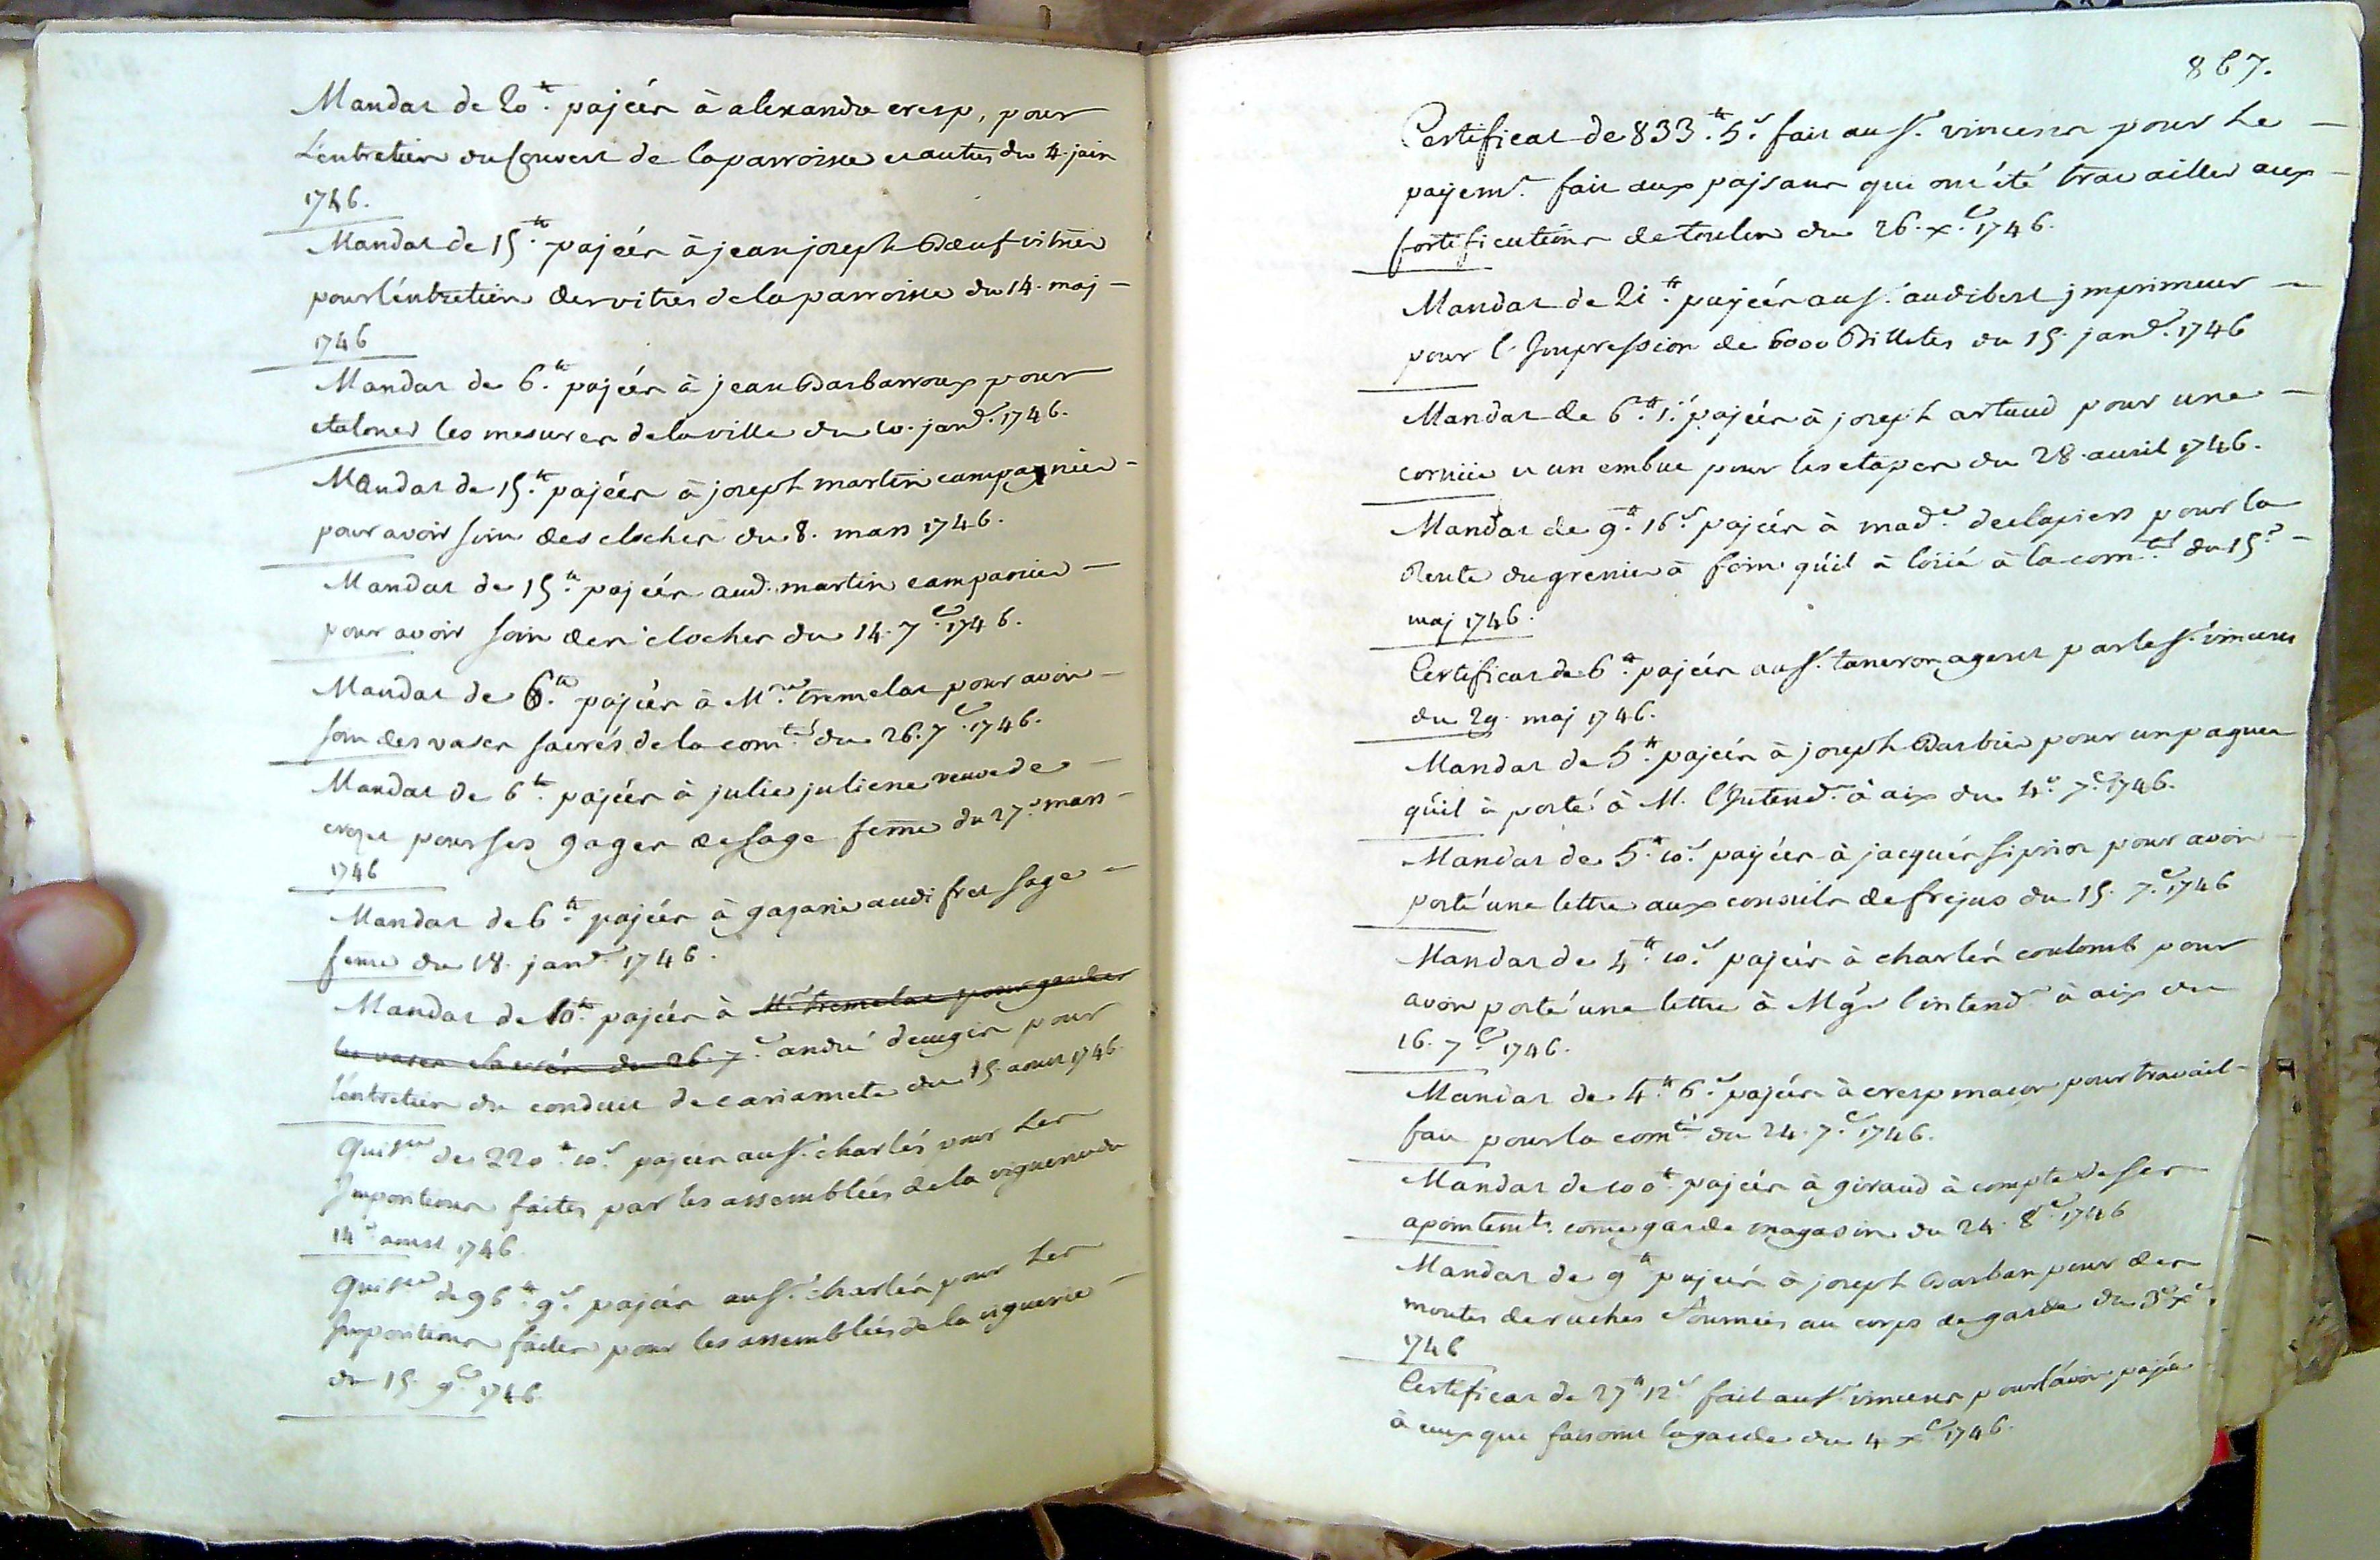 Mandat de 20.tt payées à alexandre cresp, pour
L'entretien du Couvert de la parroisse et autres du 4. juin
1746.
Mandat de 15.tt payées à jean joseph Bœuf vitrier
pour l'entretien des vitres de la parroisse du 14. maj
1746
Mandat de 6.tt payées à jean Barbarroux pour
etaloner les mesures de la ville du 10. janv.r 1746.
Mandat de 15.tt payées à joseph martin campagnier
pour avoir soin des cloches du 8. mars 1746.
Mandat de 15.tt payées aud. martin campanier
pour avoir soin des cloches du 14. 7.e 1746.
Mandat de 6.tt payées à M.re tremelat pour avoir
soin des vases sacrés de la com.té du 26. 7.e 1746.
Mandat de 6.tt payées à julie juliene veuve de
cresp pour ses gages de sage feme du 27.e mars
1746
Mandat de 6.tt payées à audifret sage
feme du 18. janv.r 1746.
Mandat de 10.tt payées à M.re tremelat pour garder
les vases sacrés du 26. 7.e andré deugier pour
l'entretien du conduit de du 15. aoust 1746.
Quit.ce de 220.tt 10.s payées au s.r charles pour Les
Impositions faites par les assemblées de la viguerie du
14.e aoust 1746.
Quit.ce de 96.tt 9.s payées au s.r charles pour Les
Impositions faites pour les assemblées de la viguerie
du 15. 9.e 1746.
867.
Certificat de 833.tt 5.s fait au s.r vincens pour Le
payem.t fait aux paysans qui ont été travailler aux
fortifications de toulon du 26. x.e 1746.
Mandat de 21.tt payées au s.r audibert jmprimeur
pour l'Impression de 6000 Billetes du 15. janv.r 1746
Mandat de 6.tt 1.s payées à joseph artaud pour une
cornüe et un embue pour les etapes du 28. avril 1746.
Mandat de 9.tt 16.s payées à mad.e desclapiers pour la
Rente du grenier à foin qu'il à loüé à la com.té du 15.e
maj 1746.
Certificat de 6.tt payées au s.r taneron agent par le s.r vincens
du 29. maj 1746.
Mandat de 5.tt payées à joseph Barbier pour un paquet
qu'il à porté à M. l'Intend.t à aix du 4.e 7.e 1746.
Mandat de 5.tt 10.s payées à jacques siprior pour avoir
porté une lettre aux consuls de frejus du 15. 7.e 1746
Mandat de 4.tt 10.s payées à charles coulomb pour
avoir porté une lettre à Mg.r l'intend.t à aix du
16. 7.e 1746.
Mandat de 4.tt 6.s payées à cresp maçon pour travail
fait pour la com.té du 24. 7.e 1746.
Mandat de 100.tt payées à giraud à compte de ses
apointem.ts come garde magasin du 24. 8.e 1746
Mandat de 9.tt payées à joseph Barban pour des
moutes de ruches fournies au corps de garde du 3.e x.e
1746
Certificat de 27.tt 12.s fait au s.r vincens pour l'avoir payé
à ceux qui faisoint la garde du 4 x.e 1746.